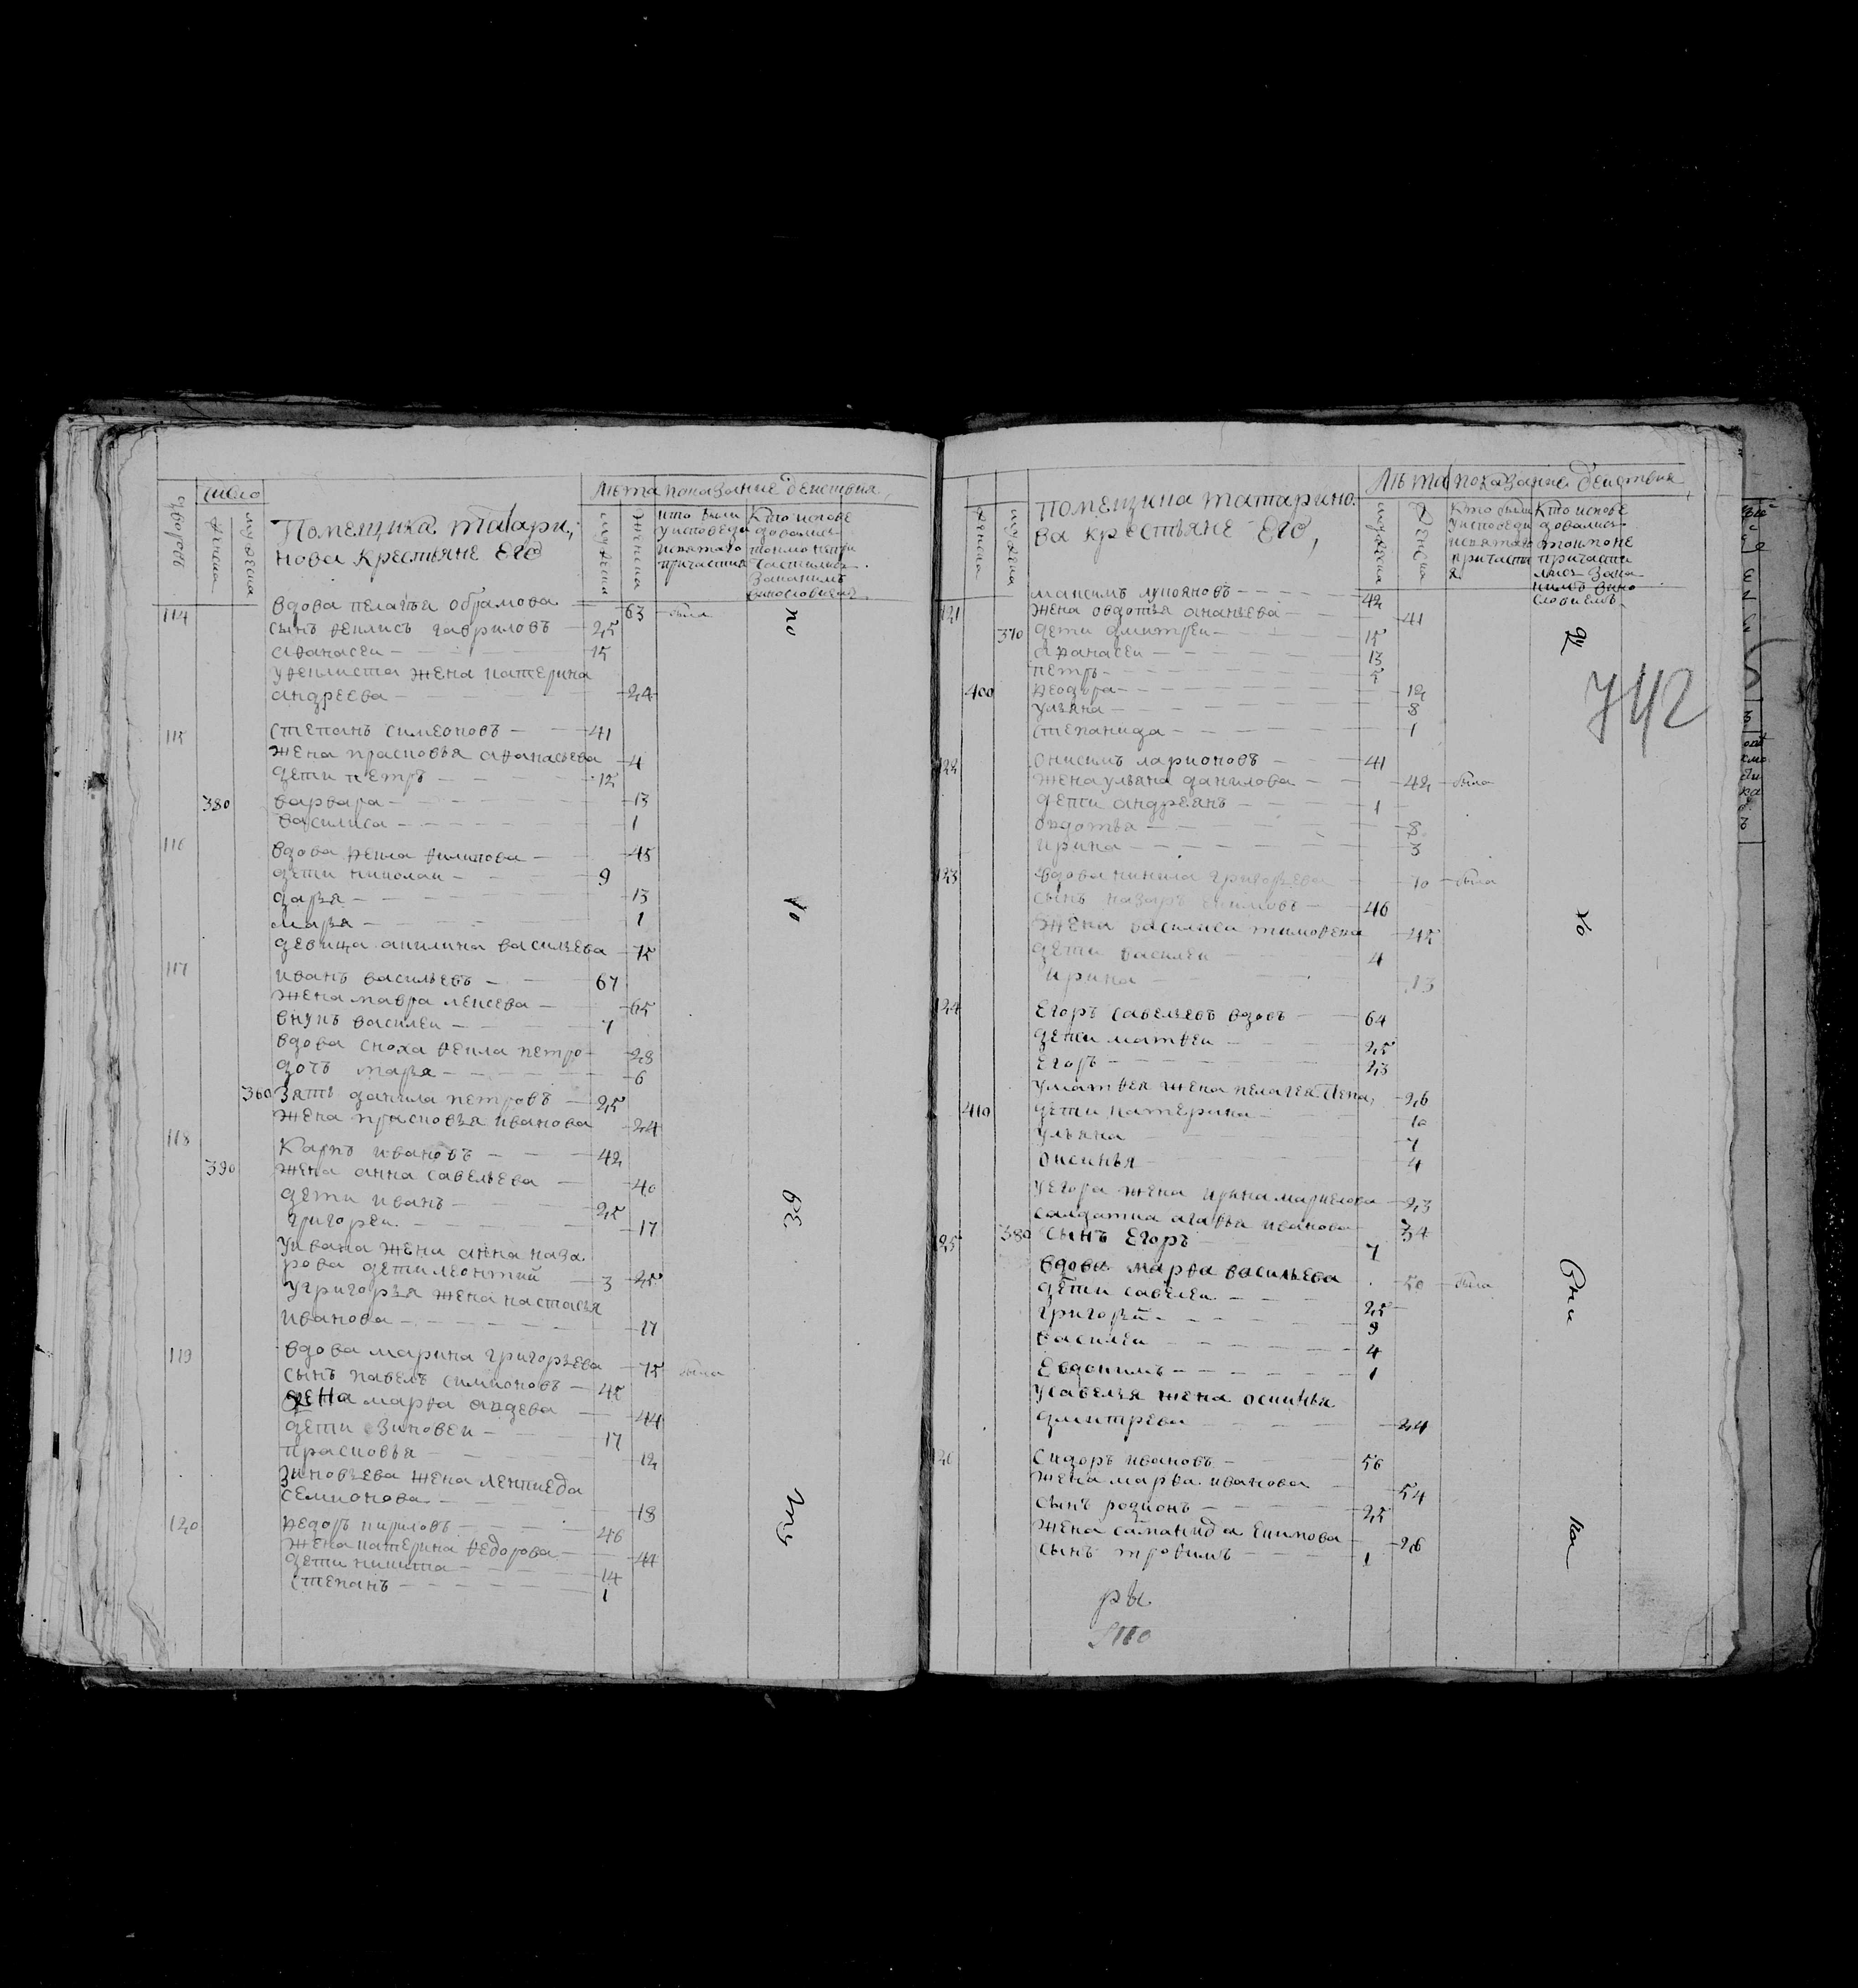 число
лѣта показание действия
дворовъ
женска
мужеска
Помещика татари,
нова крестьяне Его
мужеска
женска
кто были
у исповеди
исвятаго
причастия
Кто испове
довались
токмо непри
частились
закакимъ
винословием
114 вдова пелагеи обрамова 63 была
сынъ денисъ гавриловъ 25
афанасеи 15
андреева 24
115 степанъ симеоновъ 41
жена прасковья афанасьева 4
дети петръ 12
380 варвара 13
василиса 1
116 вдова фекла филипова 45
дети николаи 9
дарья 13
марья 1
девица акилина васильева 75
117 иванъ васильевъ 67
жена мавра алексеева 65
внукъ василеи 7
вдова сноха фекла петро 28
дочь марья 6
360 зять данила петровъ 25
жена прасковья иванова 24
118 Карпъ ивановъ 42
390 жена анна савельева 40
дети иванъ 25
григореи 17
у ивана жена анна наза
рова дети леонтий 3 25
у григорья жена настасья
иванова 17
119 вдова марина григорьева 75 была
сынъ павелъ симионовъ 45
жена марфа авдева 44
дети зиновеи 17
прасковья 12
зиновьева жена
семионова 18
120 федоръ кириловъ 46
жена катерина федорова 44
дети никита 14
степанъ 1
по
63
помещика татарино
ва крестьяне Его,
лѣта показание действия
женска
мужеска
мужеска
женска
Кто были
у исповеди
исвятаго
причасти
я
Кто испове
довались
токмо не
причасти
лись зака
кимъ вино
словиемъ
максимъ лукояновъ 42
121 жена овдотья ананьева 41
370 дети дмитреи 15
афанасеи 13
петръ 5
400 федора 12
ульяна 8
степанида 1
122 онисимъ ларионовъ 41
жена ульяна данилова 42 была
дети андреянъ 1
овдотья 8
ирина 3
123 вдова кикила григорьева 70 была
сынъ назаръ 46
жена василиса тимофеева 45
дети василеи 4
ирина 13
124 Егоръ савельевъ вдовъ 64
дети матфеи 25
Егоръ 23
у матфея жена пелагея 26
410 дети катерина 10
ульяна 7
оксинья 4
у егора жена ирина 23
салдатка агафья иванова 34
380 сынъ Егоръ 7
125 вдова марфа васильева 50 была
дети савелеи 25
григореи 9
василеи 4
Евдокимъ 1
у савелья жена осинья
дмитрева 24
126 Сидоръ ивановъ 56
жена марфа иванова 54
сынъ родионъ 25
жена саманида екимова 26
сынъ трофимъ 1
742